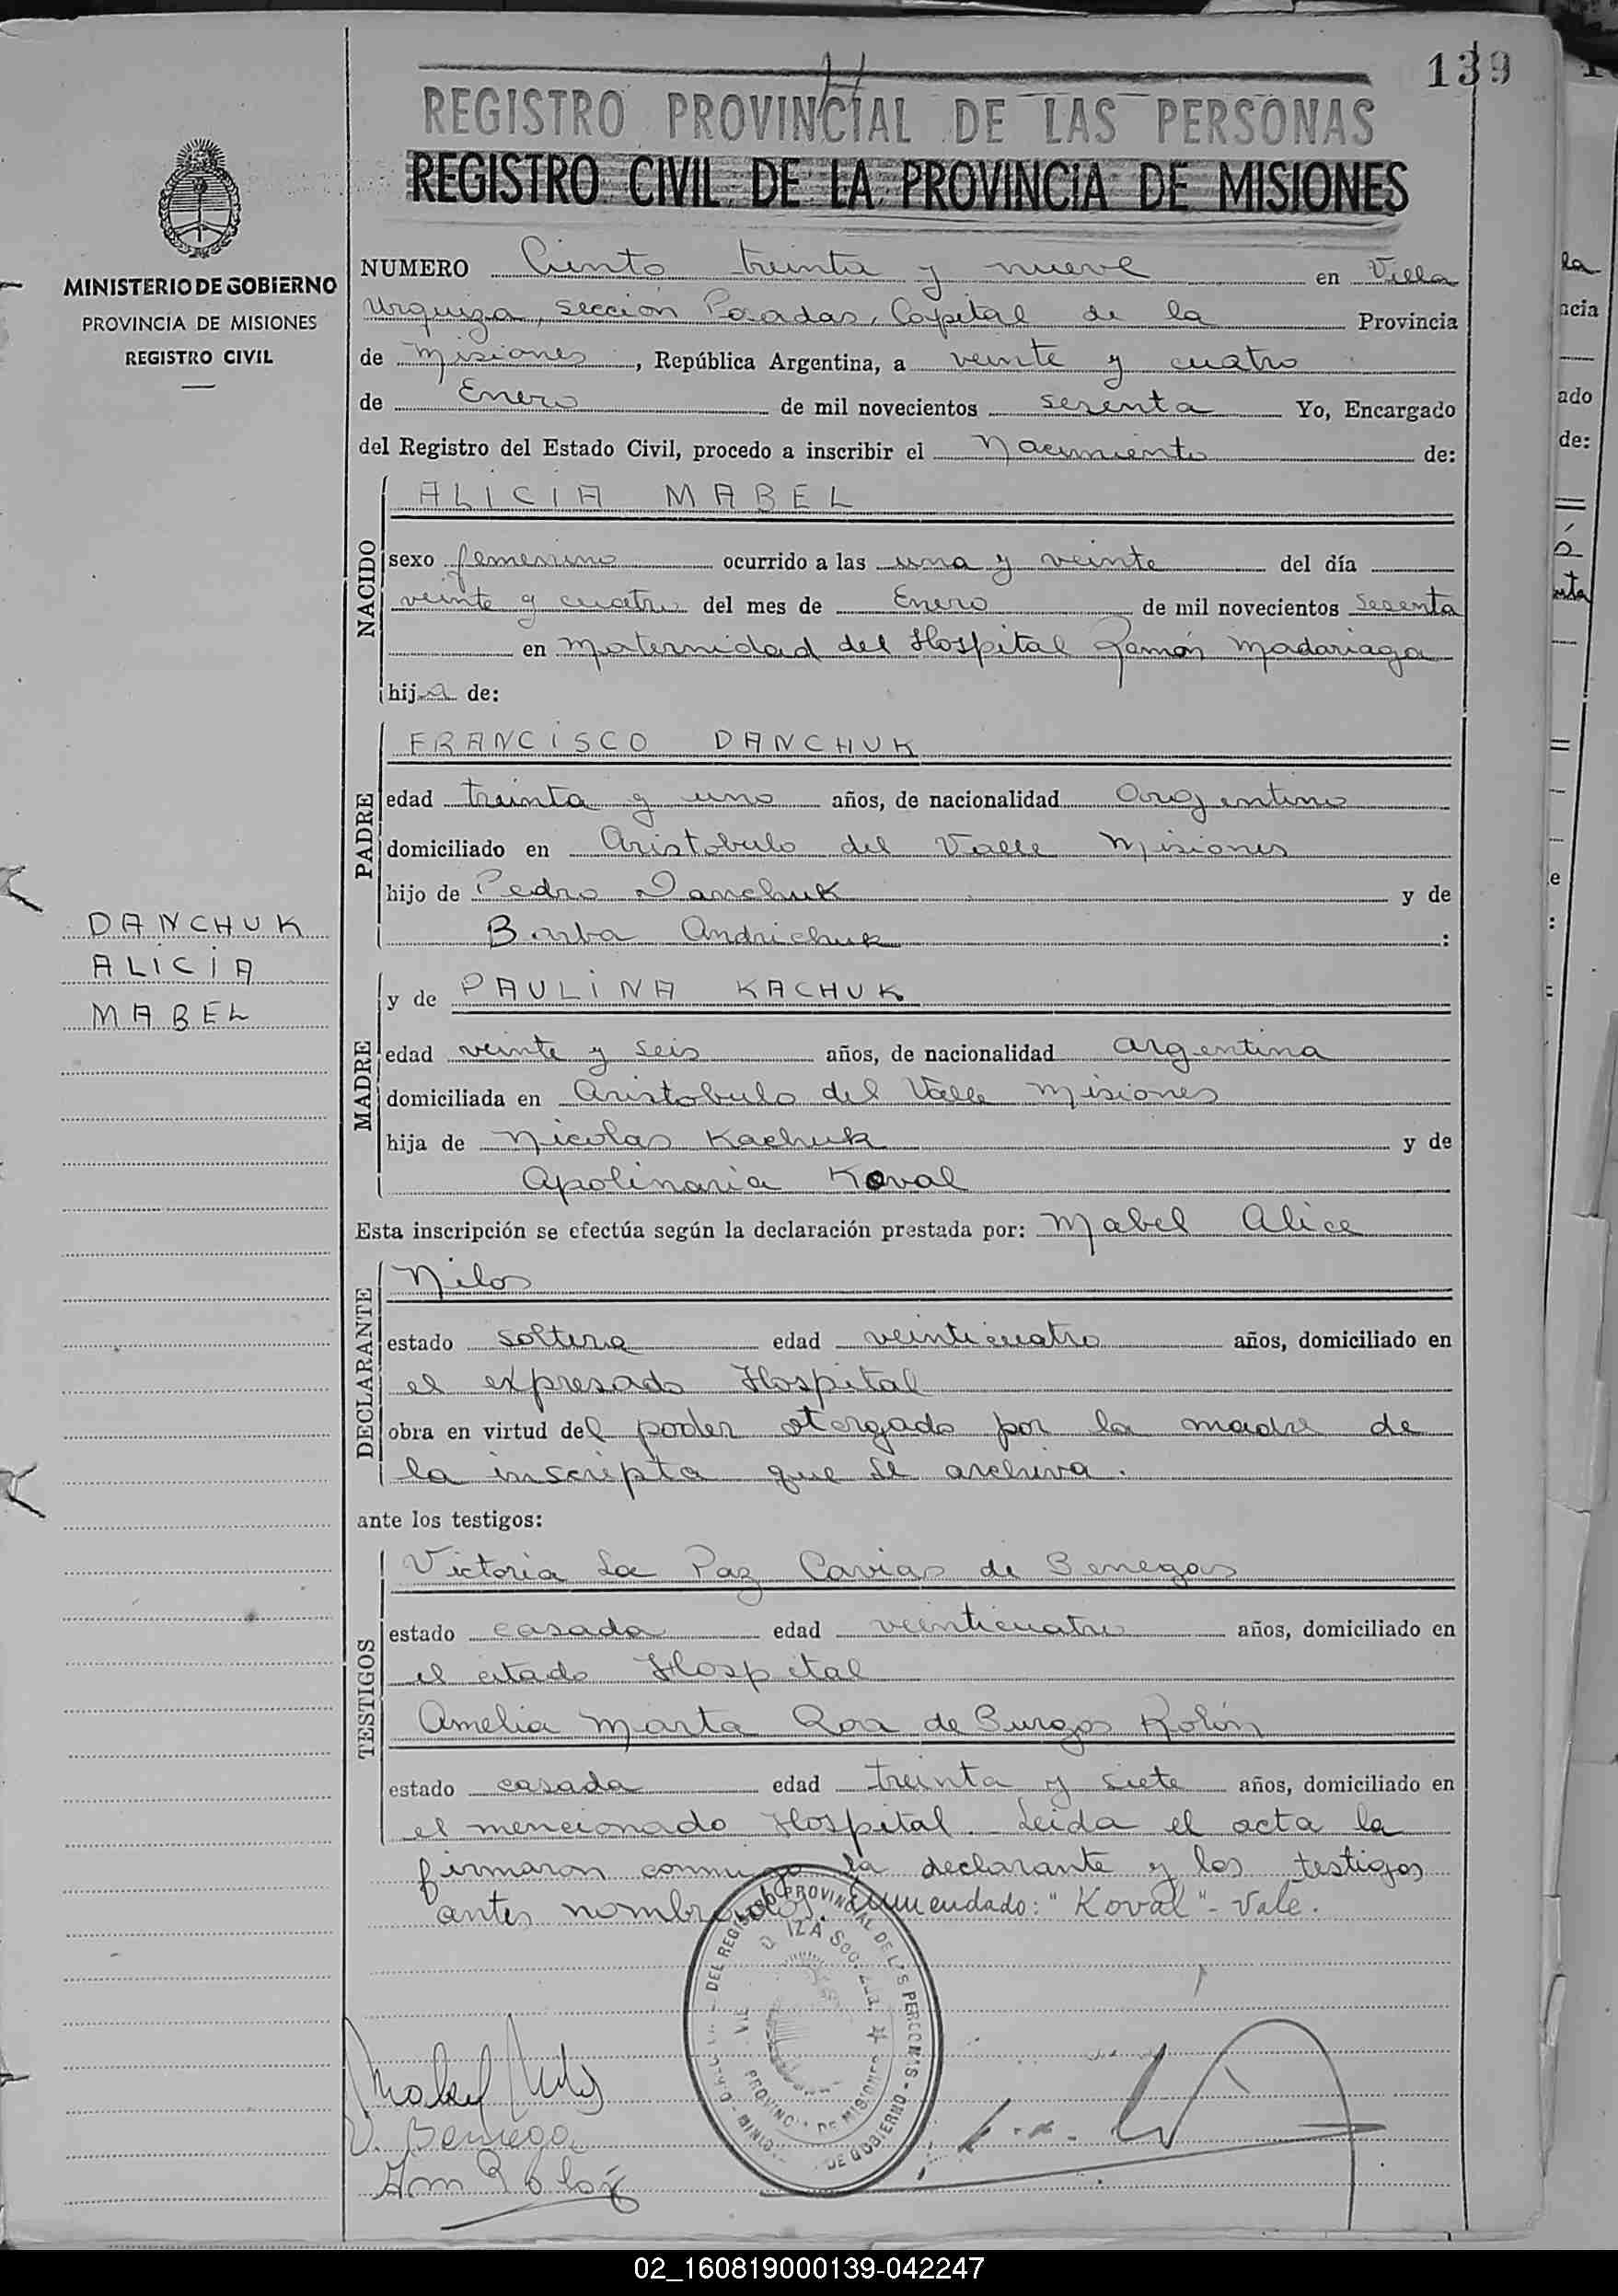 139
REGISTRO PROVINCIAL DE LAS PERSONAS
REGISTRO CIVIL DE LA PROVINCIA DE MISIONES
MINISTERIO DE GOBIERNO
PROVINCIA DE MISIONES
REGISTRO CIVIL
NUMERO Ciento treinta y nueve en Villa
Urquiza, sección Posadas, Capital de la Provincia
de Misiones, República Argentina, a veinte y cuatro
de Enero de mil novecientos sesenta Yo, Encargado
del Registro del Estado Civil, procedo a inscribir el Nacimiento de:
NACIDO
ALICIA MABEL
sexo femenino ocurrido a las una y veinte del día
veinte y cuatro del mes de Enero de mil novecientos sesenta
en Maternidad del Hospital Ramón Madariaga
hija de:
PADRE
FRANCISCO DANCHUK
edad treinta y uno años, de nacionalidad Argentino
domiciliado en Aristobulo del Valle Misiones
hijo de Pedro Danchuk y de
Barba Andrichuk :
DANCHUK
ALICIA
MABEL
MADRE
y de PAULINA KACHUK
edad veinte y seis años, de nacionalidad argentina
domiciliada en Aristobulo del Valle Misiones
hija de Nicolas Kachuk y de
Apolinaria Koval
Esta inscripción se efectúa según la declaración prestada por: Mabel Alice
DECLARANTE
Nilos
estado soltera edad veinticuatro años, domiciliado en
el expresado Hospital
obra en virtud del poder otorgado por la madre de
la inscripta que se archiva.
ante los testigos:
TESTIGOS
Victoria La Paz Cavias de Benegas
estado casada edad veinticuatro años, domiciliado en
el citado Hospital
Amelia Marta Roa de Burgos Rolón
estado casada edad treinta y siete años, domiciliado en
el mencionado Hospital. Leida el acta la
firmaron conmigo la declarante y los testigos
antes nombrados. Enmendado: "Koval" - Vale.
DEL REGISTRO PROVINCIAL DE LAS PERSONAS
PROVINCIA DE MISIONES
DE GOBIERNO
Mabel Nilos
V. Benega
02_160819000139-042247